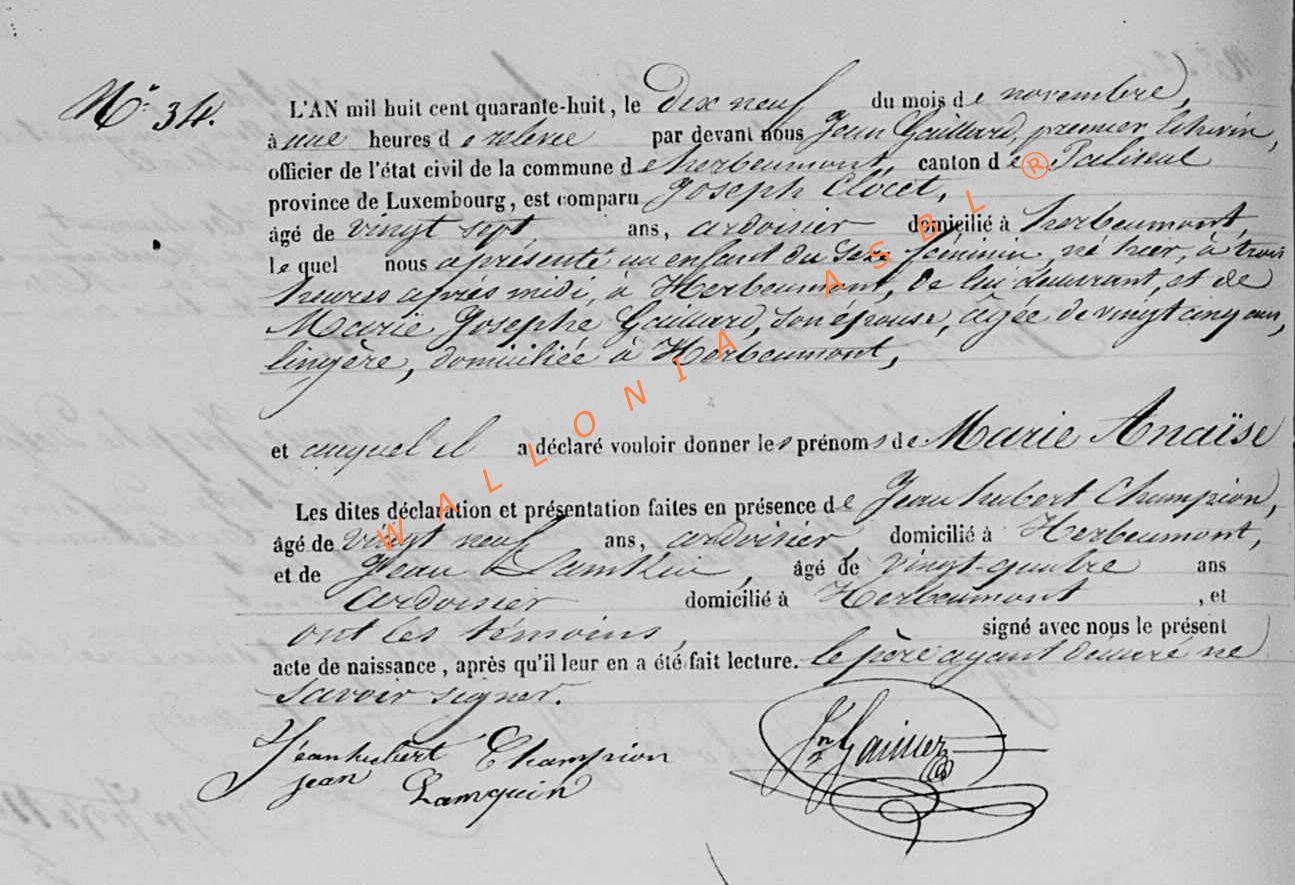 N° 34.
L'AN mil huit cent quarante-huit, le Dix neuf du mois de novembre,
à une heures de relevée par devant nous Jean Gaillard, premier Echevin,
officier de l'état civil de la commune de herbeumont, canton de Paliseul
province de Luxembourg, est comparu Joseph Clocet,
âgé de vingt sept ans, ardoisier domicilié à herbeumont,
le quel nous a présenté un enfant du sexe féminin, né hier, à trois
heures après midi, à Herbeumont, de lui déclarant, et de
Marie Josephe Gaillard, son épouse, âgée de vingt cinq ans,
lingère, domiciliée à Herbeumont,
et auquel il a déclaré vouloir donner les prénoms de Marie Anaïse
Les dites déclaration et présentation faites en présence de Jean hubert Champion,
âgé de vingt neuf ans, ardoisier, domicilié à Herbeumont,
et de Jean Lamkin, âgé de vingt-quatre ans
ardoisier domicilié à Herbeumont, et
ont les témoins, signé avec nous le présent
acte de naissance, après qu'il leur en a été fait lecture. le père ayant déclaré ne
savoir signer.
Jeanhubert Champion
jean Lamquin
Jn Gaillard
WALLONIA ASBL ®